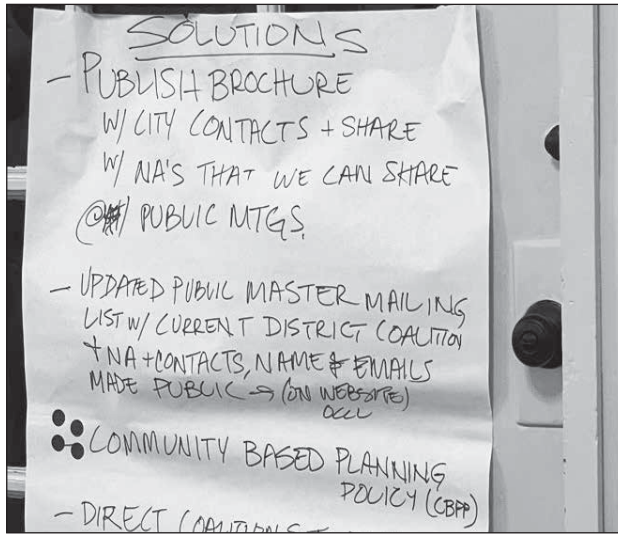 SOLUTIONS
- PUBLISH BROCHURE
W/ CITY CONTACTS + SHARE
W/ NA'S THAT WE CAN SHARE
@ PUBLIC MTGS.
- UPDATED PUBLIC MASTER MAILING
LIST W/ CURRENT DISTRICT COALITION
+ NA + CONTACTS, NAME & EMAILS
MADE PUBLIC → (ON WEBSITE)
OCCL
COMMUNITY BASED PLANNING
POLICY (CBPP)
- DIRECT COALITIONS